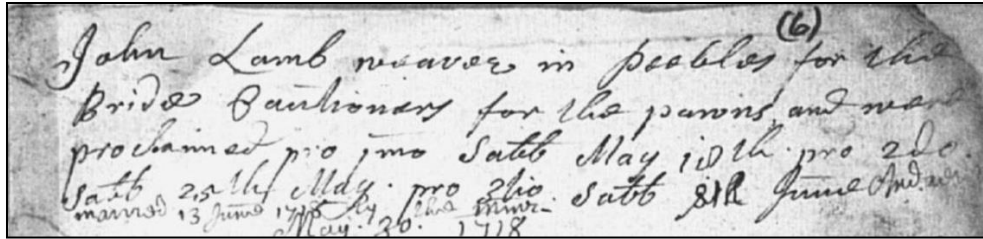 (6)
John Lamb weaver in Peebles for the
Bride Cautioners for the pawns, and were
proclaimed pro 1mo Sabb May 18th. pro 2do.
Sabb 25th May. pro 3tio Sabb 8th June And
married 13 June 1718 by the minr.
May. 30. 1718